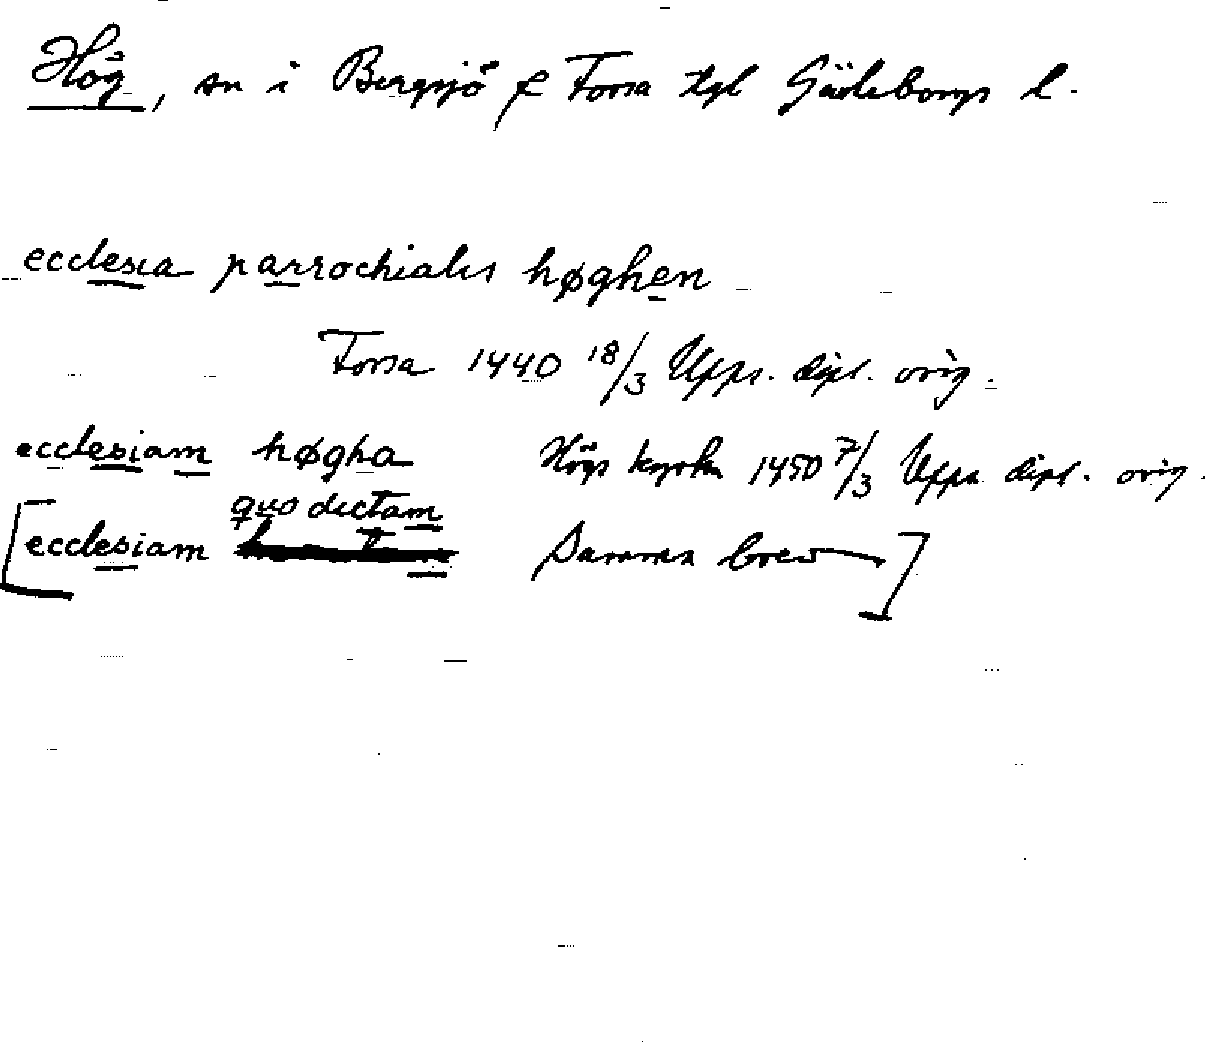 Hög, sn i Bergsjö & Forsa tgl Gävleborgs l.
ecclesia parrochialis høghen
Forsa 1440 18/3 Upps. dipl. orig.
ecclesiam høgha Högs kyrka 1450 7/3 Upps dipl. orig.
quo dictam
[ecclesiam Samma brev]